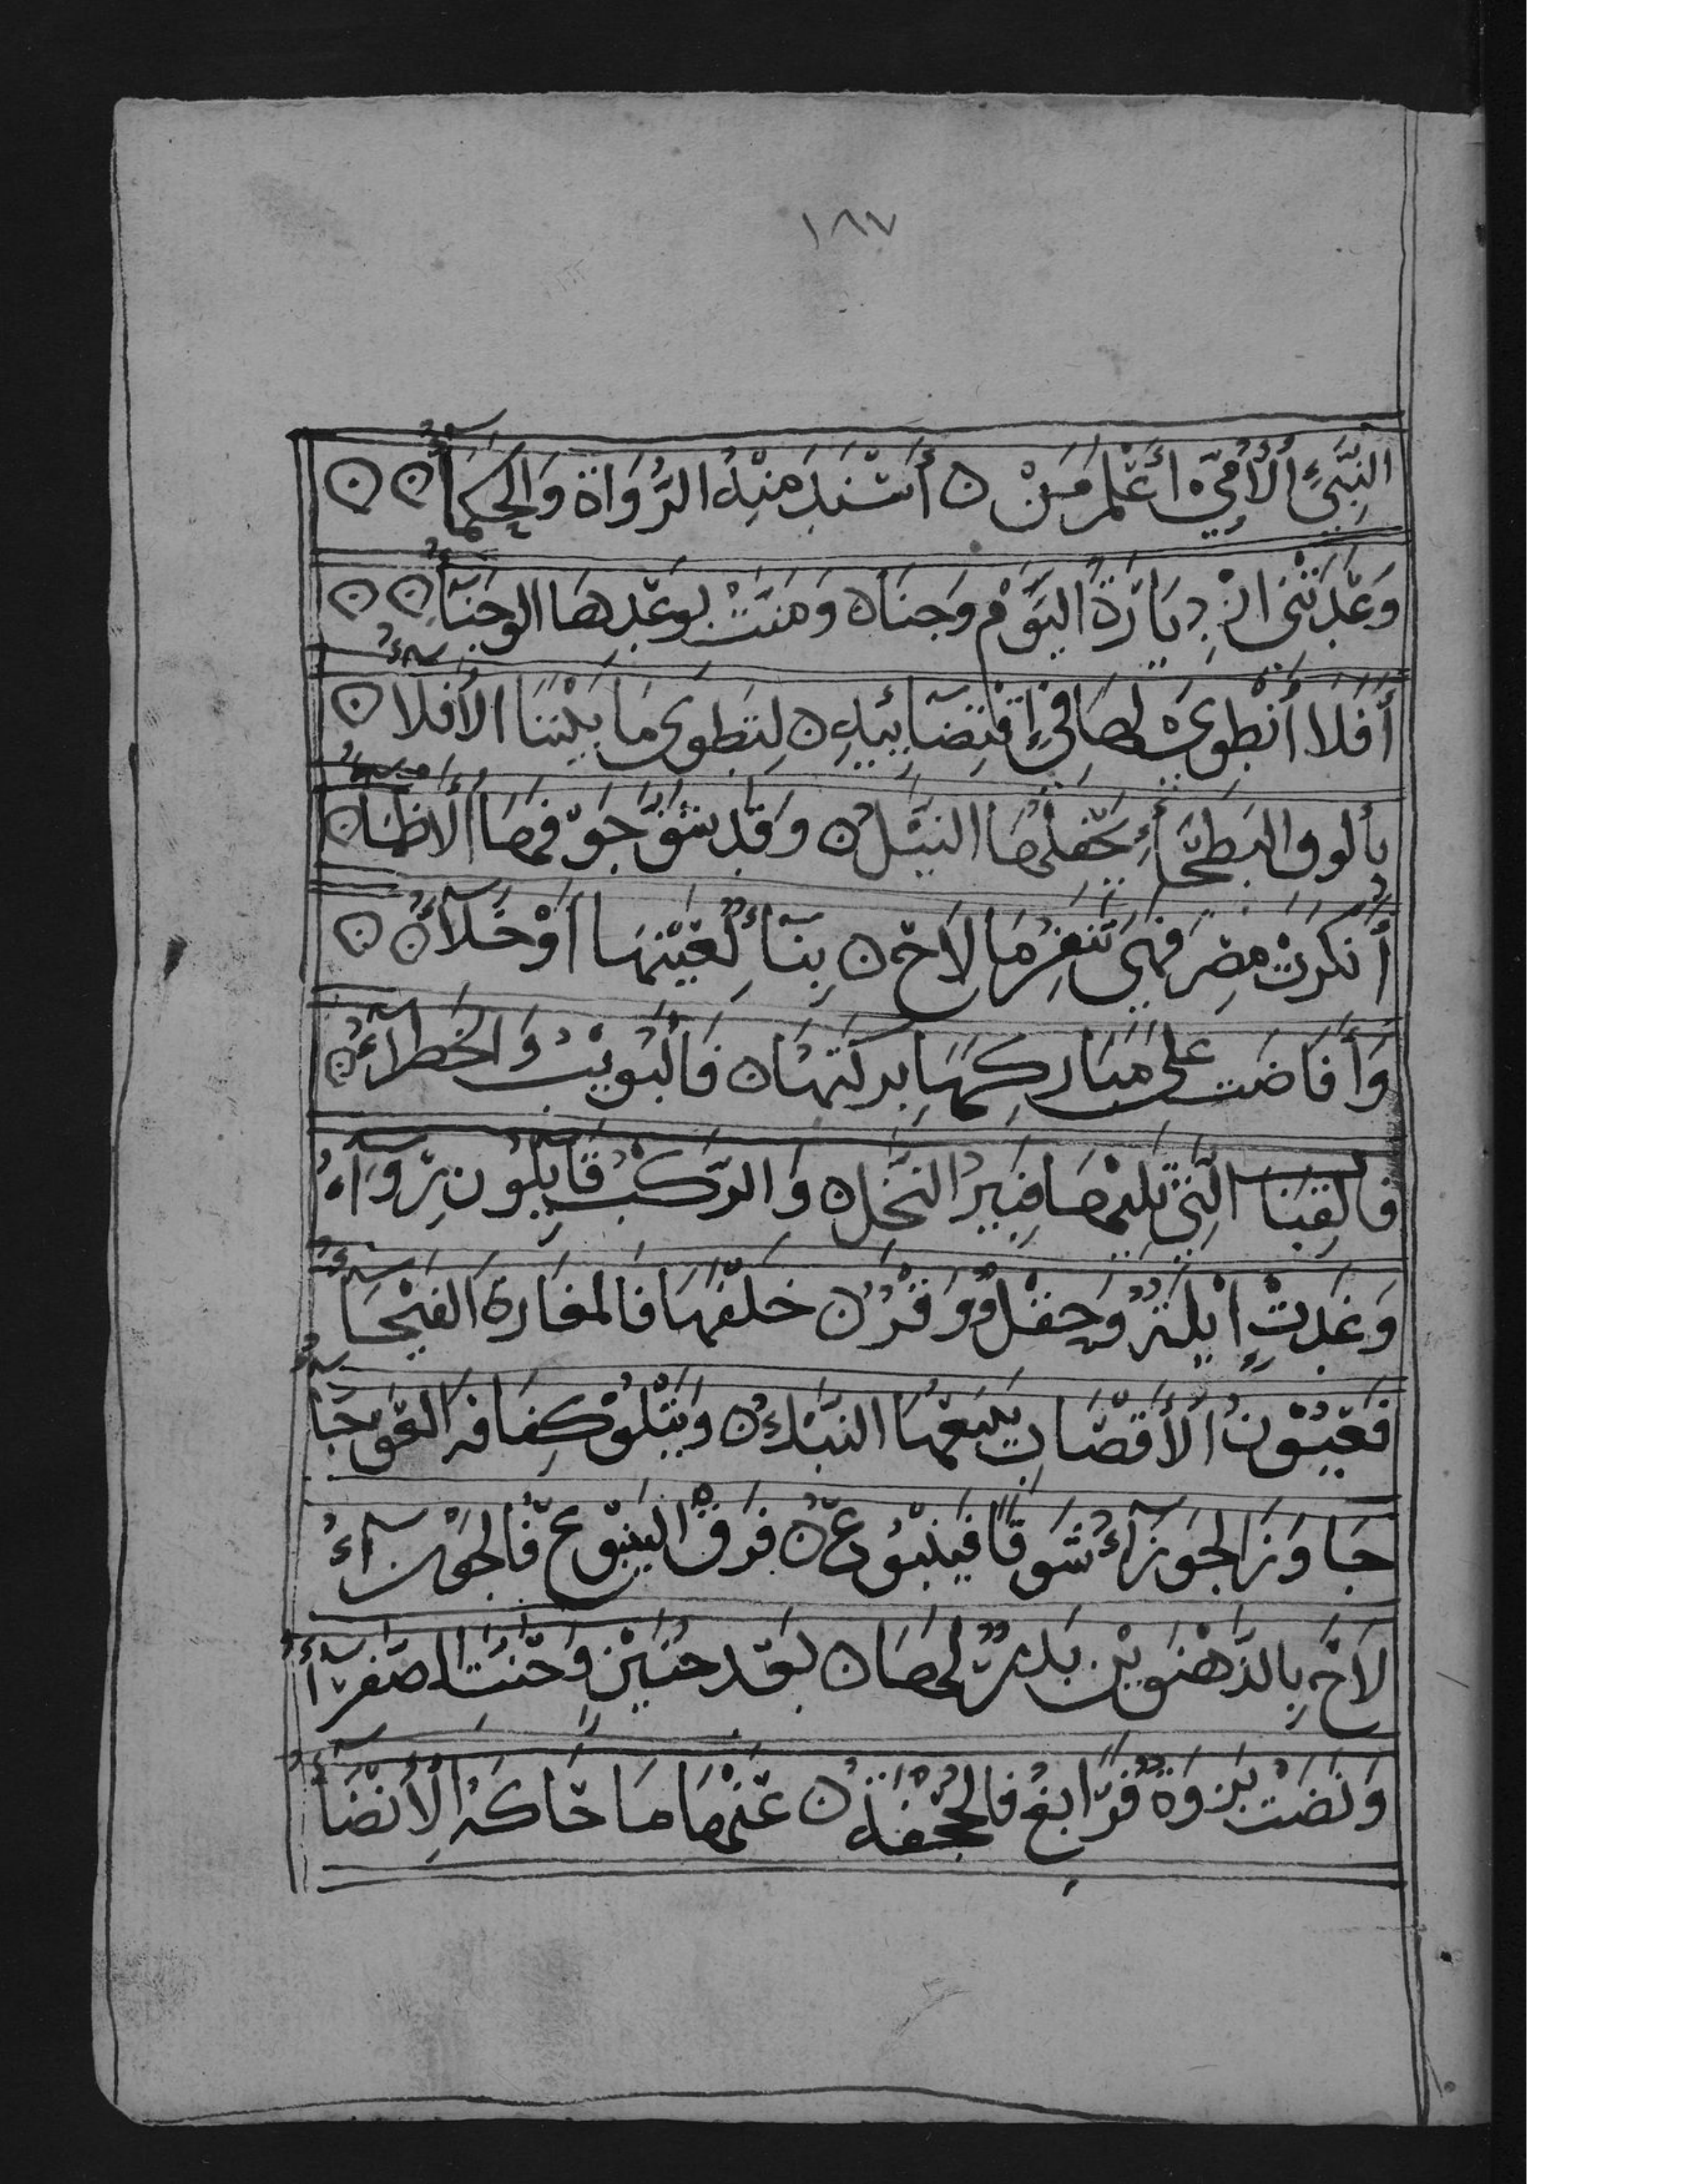 ١٨٧
النَّبِيِّ الْأُمِّيِّ أَعْلَمِ مَنْ ن أَسْنَدَ مِنْهُ الرُّوَاةُ وَالْحُكَمَآءُ ن ن
وَعَدَتْنِي ازْدِيَارَهُ الْيَوْمَ وَجْنَاهُ وَمَنَّتْ بِوَعْدِهَا الْوَجْنَآءُ ن ن
أَفَلَا أَنْطَوِي لَهَا فِي إِقْتِضَآئِيهِ ن لِتَطْوِي مَا بَيْنَنَا الْأَفْلَآءُ ن
بِأَلُوفِ الْبَطْحَآءِ يُجْفِلُهَا النِّيلُ ن وَقَدْ شَفَّ جَوْفَهَا الْأَظْمَآءُ ن
أَنْكَرَتْ مِصْرَ فَهِيَ تَنْفِرُ مَا لَاحَ ن بِنَآءٌ لِعَيْنِهَا أَوْ خَلَآءُ ن ن
وَأَفَاضَتْ عَلَى مَبَارِكِهَا بِرْكَتُهَا ن فَالْبُوَيْبُ وَالْخَضْرَآءُ ن
فَالْقِبَابُ الَّتِي تَلِيهَا فَبِيرُ النَّخْلِ ن وَالرَّكْبُ قَايِلُونَ رِوَآءُ
وَغَدَتْ أَيْلَةٌ وَحِقْلٌ وَقَرٌّ ن خَلْفَهَا فَالْمَغَارَةُ الْفَيْحَآءُ
فَعُيُونُ الْأَقْصَابِ يَتْبَعُهَا النَّبْكُ ن وَيَتْلُو كِفَافَهُ الْعَوْجَآءُ
جَاوَزَ الْجَوْزَآءُ شَوْقًا فَيَنْبُوعٌ ن فَرَقَّ الْيَنْبُوعُ فَالْحَوْرَآءُ
لَاحَ بِالدَّهْنَوَيْنِ بَدْرٌ لَهَا ن بَعْدَ حُنَيْنٍ وَحَنَّتِ الصَّفْرَآءُ
وَنَضَتْ بَزْوَةٌ فَرَابِغُ فَالْجُحْفَةُ ن عَنْهَا مَا حَاكَهُ الْأَنْضَآءُ